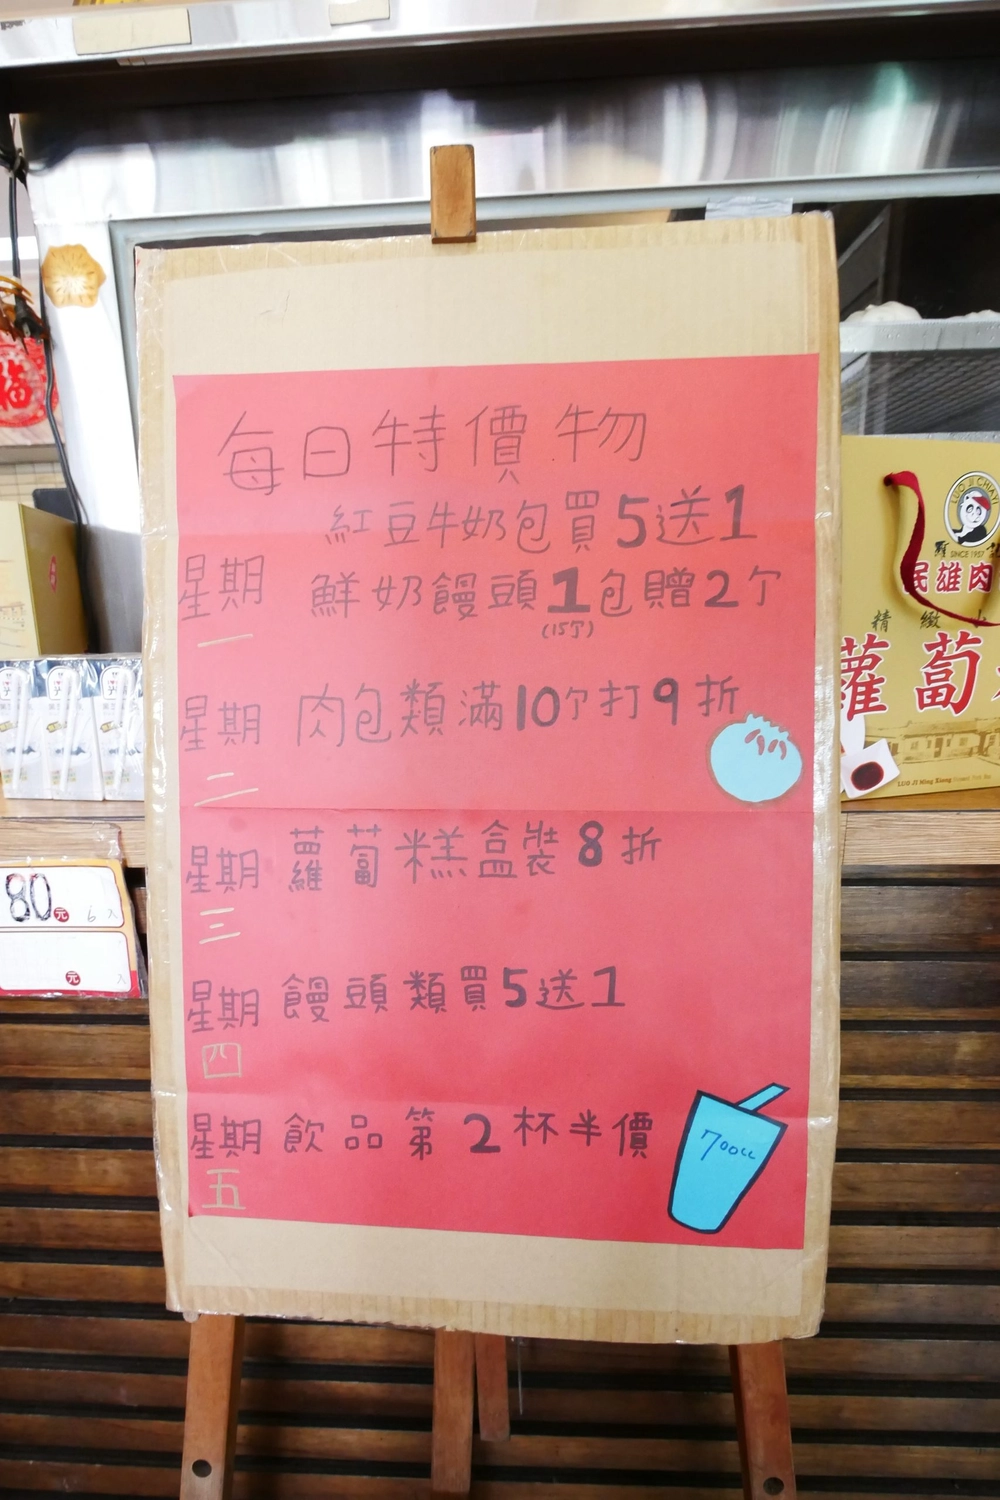 每日特價物
紅豆牛奶包買5送1
星期一
鮮奶饅頭1包贈2个
(15个)
星期二
肉包類滿10个打9折
星期三
蘿蔔糕盒裝8折
星期四
饅頭類買5送1
星期五
飲品第2杯半價
700cc
福
80元 6入
元 入
LUO JI CHIAYI
SINCE 1957
民雄肉
精緻
蘿蔔
LUO JI Ming Xiong